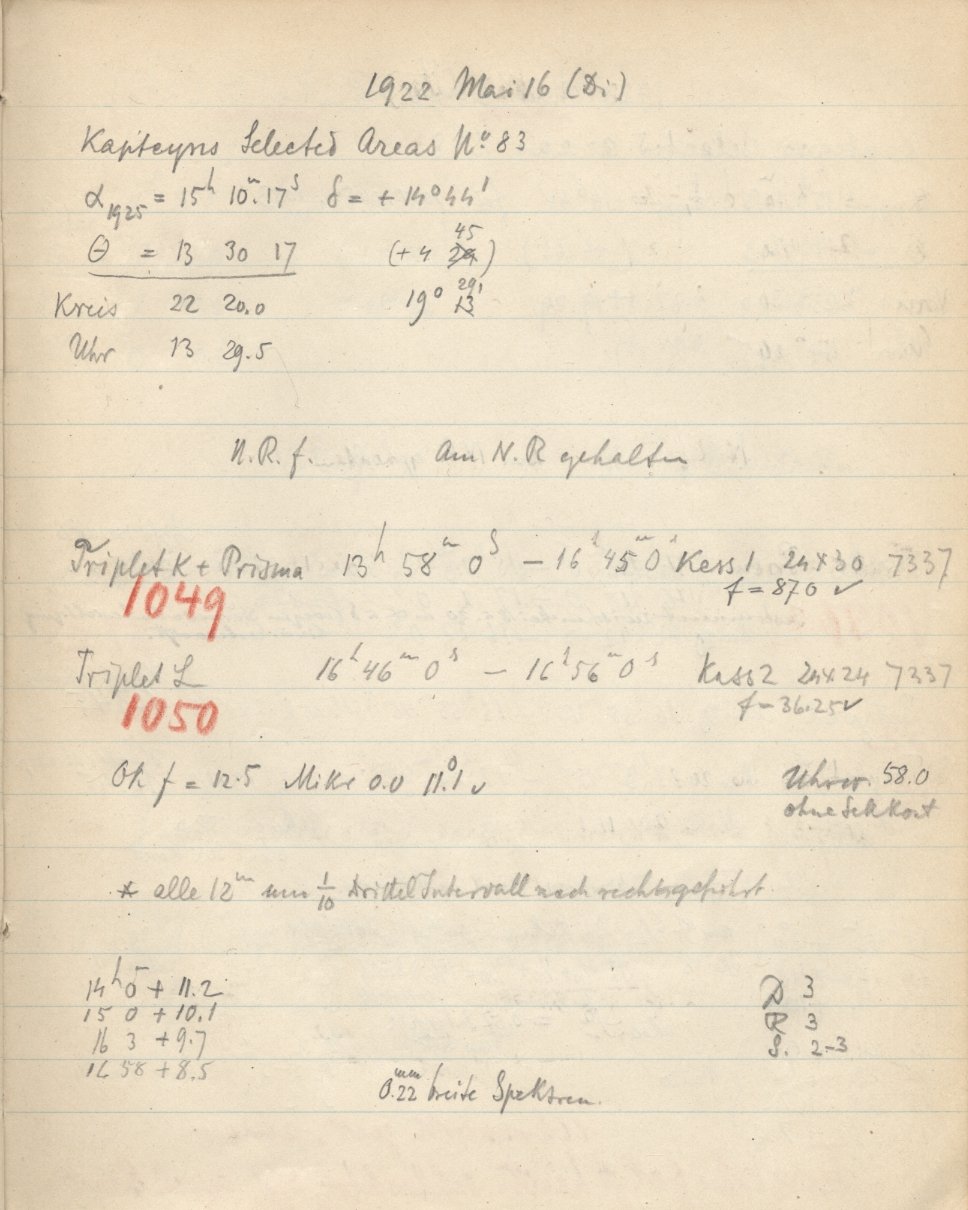 1922 Mai 16 (Di)
Kapteyns Selected Areas Nº 83
α1925 = 15h 10m.17s δ = + 14° 44'
45
θ = 13 30 17 (+ 4 24)
29'
Kreis 22 20.0 19° 13
Uhr 13 29.5
N.R.f. Am N.R gehalten
Triplet K + Prisma 13h 58m 0s – 16h 45m 0s Kass 1 24x30 7337
1049 f = 870 ✓
Triplet L 16h 46m 0s – 16h 56m 0s Kass 2 24x24 7337
1050 f = 36.25 ✓
OK f = 12.5 Mikr 0.0 11.°1 ✓ Uhrw. 58.0
ohne Sek Kont
* alle 12m um 1/10 Drittel Intervall nach rechts geführt.
14h 0m + 11.2 D 3
15 0 + 10.1 R 3
16 3 + 9.7 S. 2-3
16 58 + 8.5
0.22mm breite Spektren.